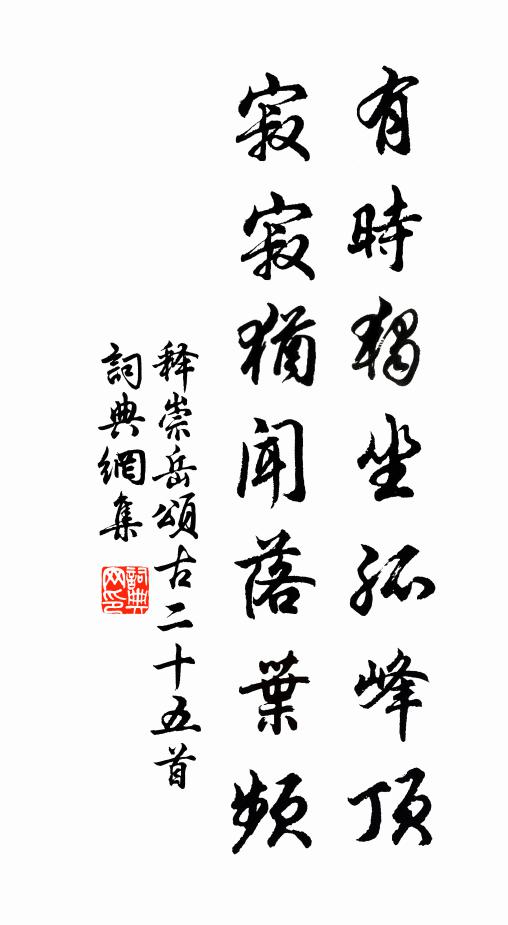 有時獨坐孤峰頂
寂寂猶聞落葉頻
释崇岳頌古二十五首
詞典網集
詞典網印